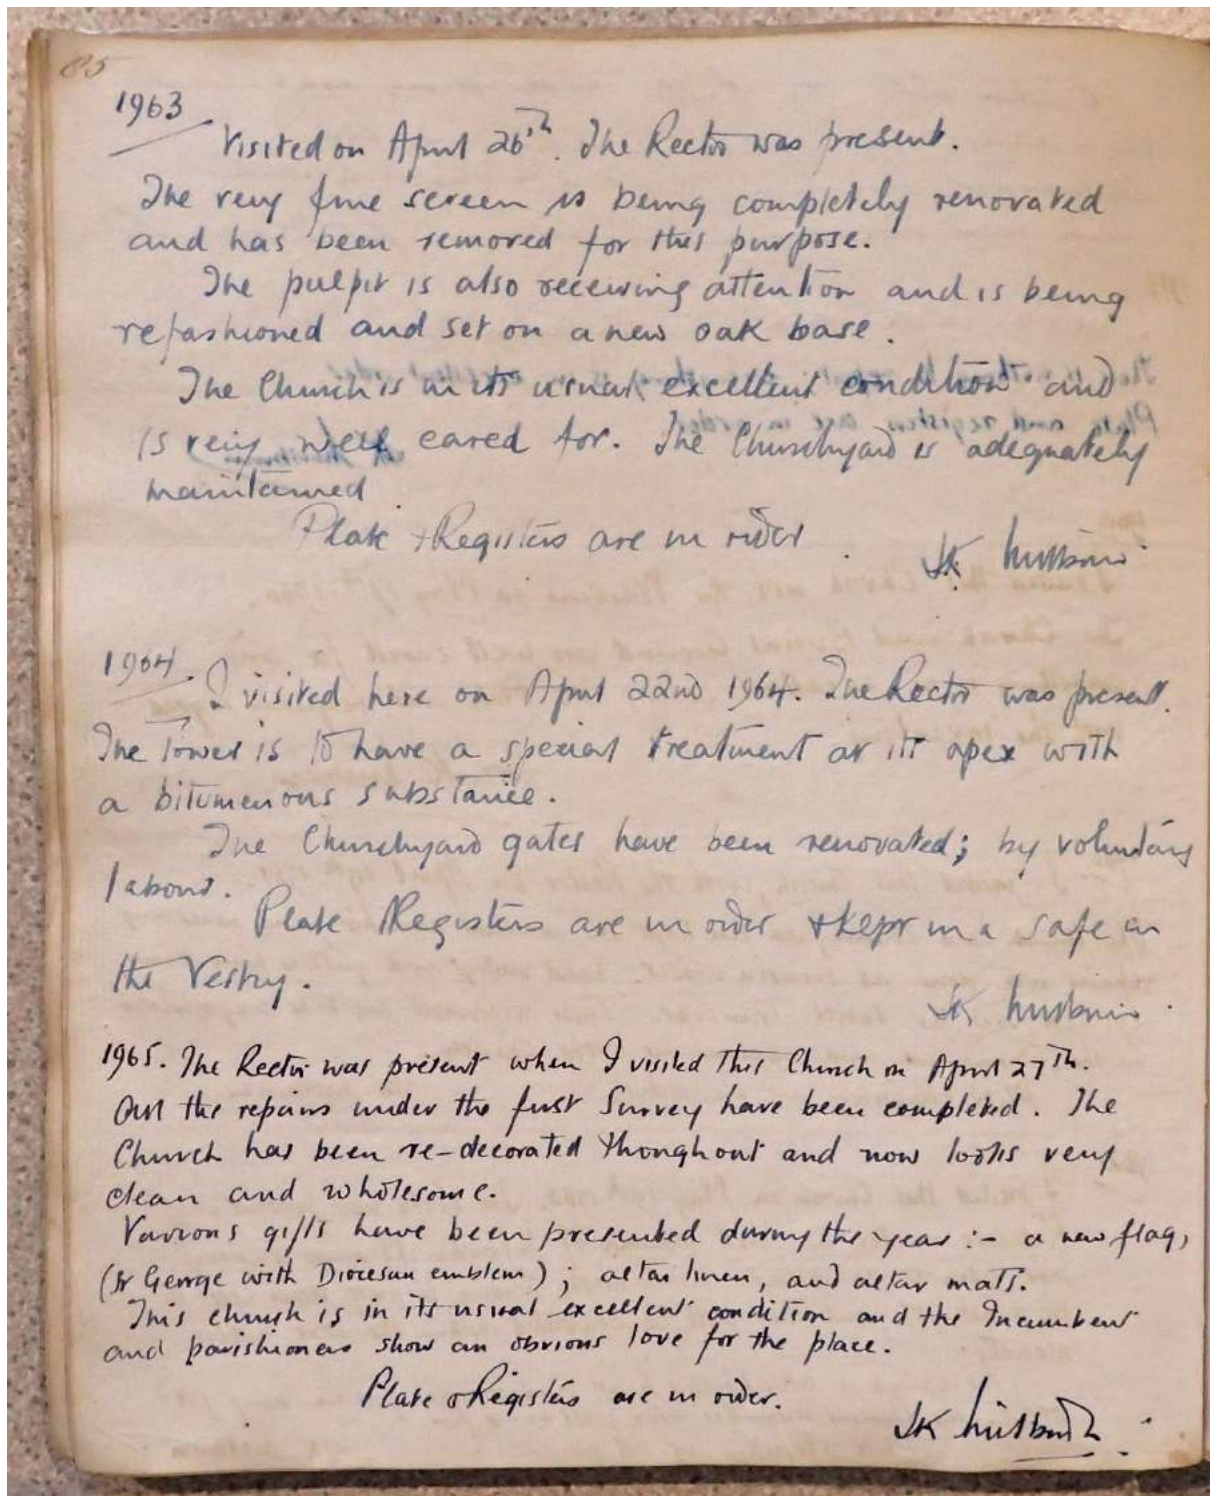 85
1963
Visited on April 26th. The Rector was present.
The very fine screen is being completely renovated
and has been removed for this purpose.
The pulpit is also receiving attention and is being
refashioned and set on a new oak base.
The Church is in its usual excellent condition and
is very well cared for. The Churchyard is adequately
maintained
Plate + Registers are in order.
JK
1964.
I visited here on April 22nd 1964. The Rector was present.
The Tower is to have a special treatment at its apex with
a bitumenous substance.
The Churchyard gates have been renovated; by voluntary
labour.
Plate Registers are in order + kept in a safe in
the Vestry.
JK
1965. The Rector was present when I visited this Church on April 27th.
All the repairs under the first Survey have been completed. The
Church has been re-decorated throughout and now looks very
clean and wholesome.
Various gifts have been presented during the year :- a new flag,
(St George with Diocesan emblem); altar linen, and altar mats.
This church is in its usual excellent condition and the Incumbent
and parishioners show an obvious love for the place.
Plate & Registers are in order.
JK